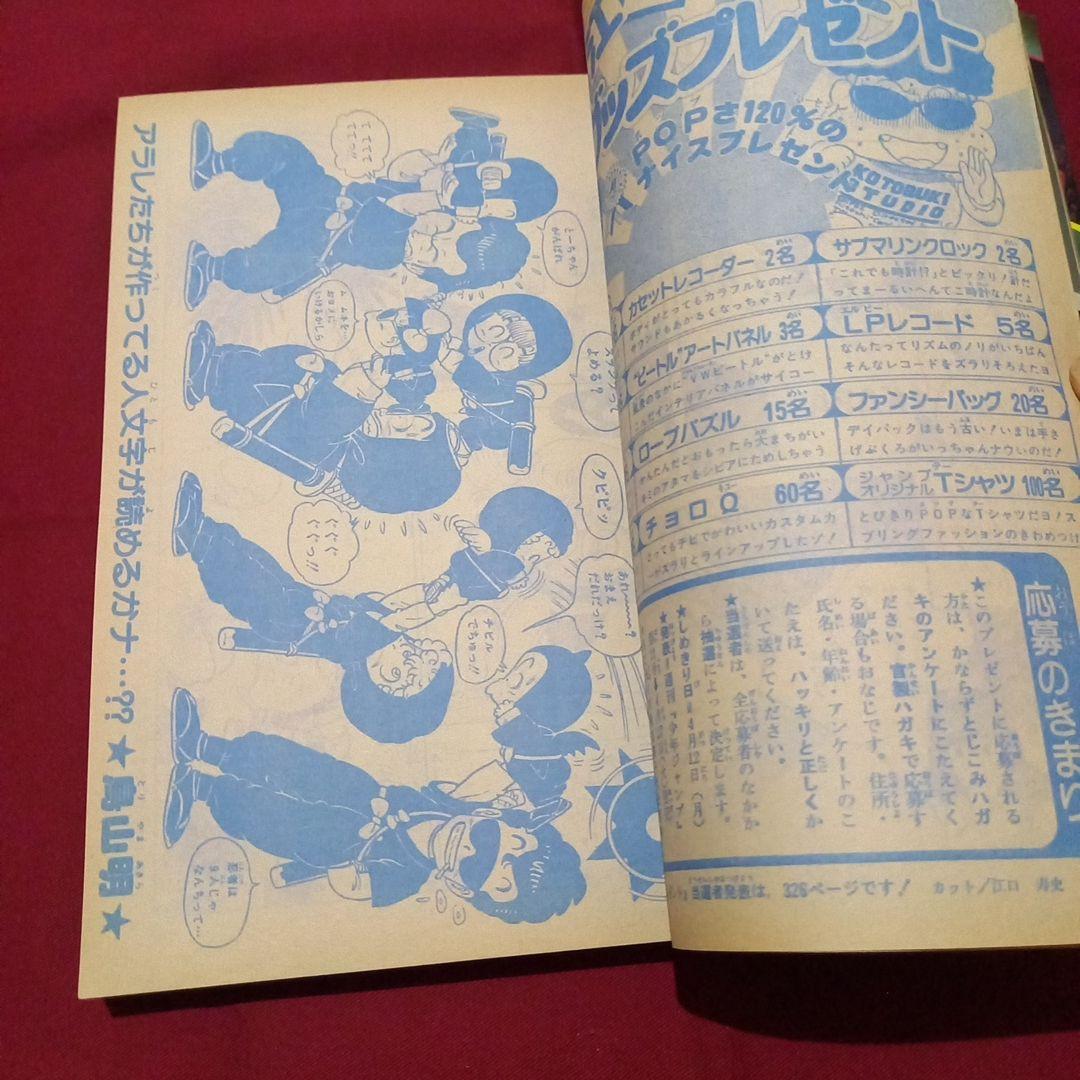 ッズプレゼント
POPさ120%の
ナイスプレゼント
KOTOBUKI
STUDIO
カセットレコーダー 2名
ボディがとってもカラフルなのだ!
サウンドもあかるくなっちゃう!
サブマリンクロック 2名
「これでも時計!?」とビックリ!計だ
ってまーるいへんてこ時計なんだよ
"ビートル"アートパネル 3名
のなかに"VWビートル"がとけ
こんだインテリアパネルがサイコー
LPレコード 5名
なんたってリズムのノリがいちばん
そんなレコードをズラリそろえたヨ
ロープパズル 15名
かんたんだとおもったら大まちがい
キミのアタマをシビアにためしちゃう
ファンシーバッグ 20名
デイパックはもう古い!いまは手さ
げぶくろがいっちゃんナウいのだ!
チョロQ 60名
とってもチビでかわいいカスタムカ
ーがズラリとラインアップしたゾ!
ジャンプオリジナルTシャツ 100名
とびきりPOPなTシャツだヨ!ス
プリングファッションのきわめつけ
応募のきまり
★このプレゼントに応募される
方は、かならずとじこみハガ
キのアンケートにこたえてく
ださい。官製ハガキで応募す
る場合もおなじです。住所・
氏名・年齢・アンケートのこ
たえは、ハッキリと正しくか
いて送ってください。
★当選者は、全応募者のなかか
ら抽選によって決定します。
★しめきり日=4月12日(月)
★発表=週刊少年ジャンプ
当選者発表は、326ページです!
カット/江口 寿史
てててて
てっ!!
とーちゃん
がんばれ
ムネを
おヨメに
いけるかしら
よめる?
クピピッ
くくく
くくっ!!
おまえ
だれだっけ!?
チビル
でちゅっ!!
忍者は
8人じゃ
なんちって…
アラレたちが作ってる人文字が読めるカナ…??★鳥山明★